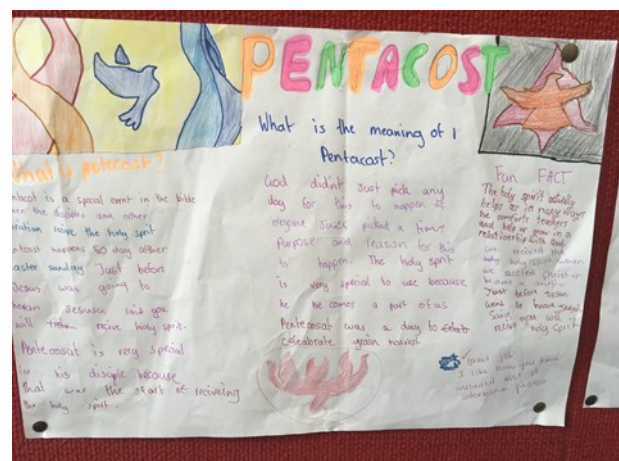 PENTACOST
What is petecost?
ntacot is a special event in the bible
when the disciples and other
recive the holy sprit
ntcost happens 50 day after
easter sanday Just before
Jesus was going to
heaven Jesus said you
will recive holy sprit.
Pentecosat is very special
for his disciple because
that was the start of reciveing
the holy spirit.
What is the meaning of
Pentacost?
God didn't Just pick any
day for this to happen at
picked a time
Purpose and reason for this
to happen. The holy sprit
is very special to use because
he he comes a part of us
Pentecosat was a day to
celabrate grain harvest
Fun FACT
The holy spirit actually
helps us in many ways
he comforts teachers
and help or grow in a
relationship with God.
we recived the
holy spirit when
we accted Christ or
become a
Just before Jesus
went to heaven
Said you will
recive holy Sprit
Great job!
I like how you have
included alot of
information